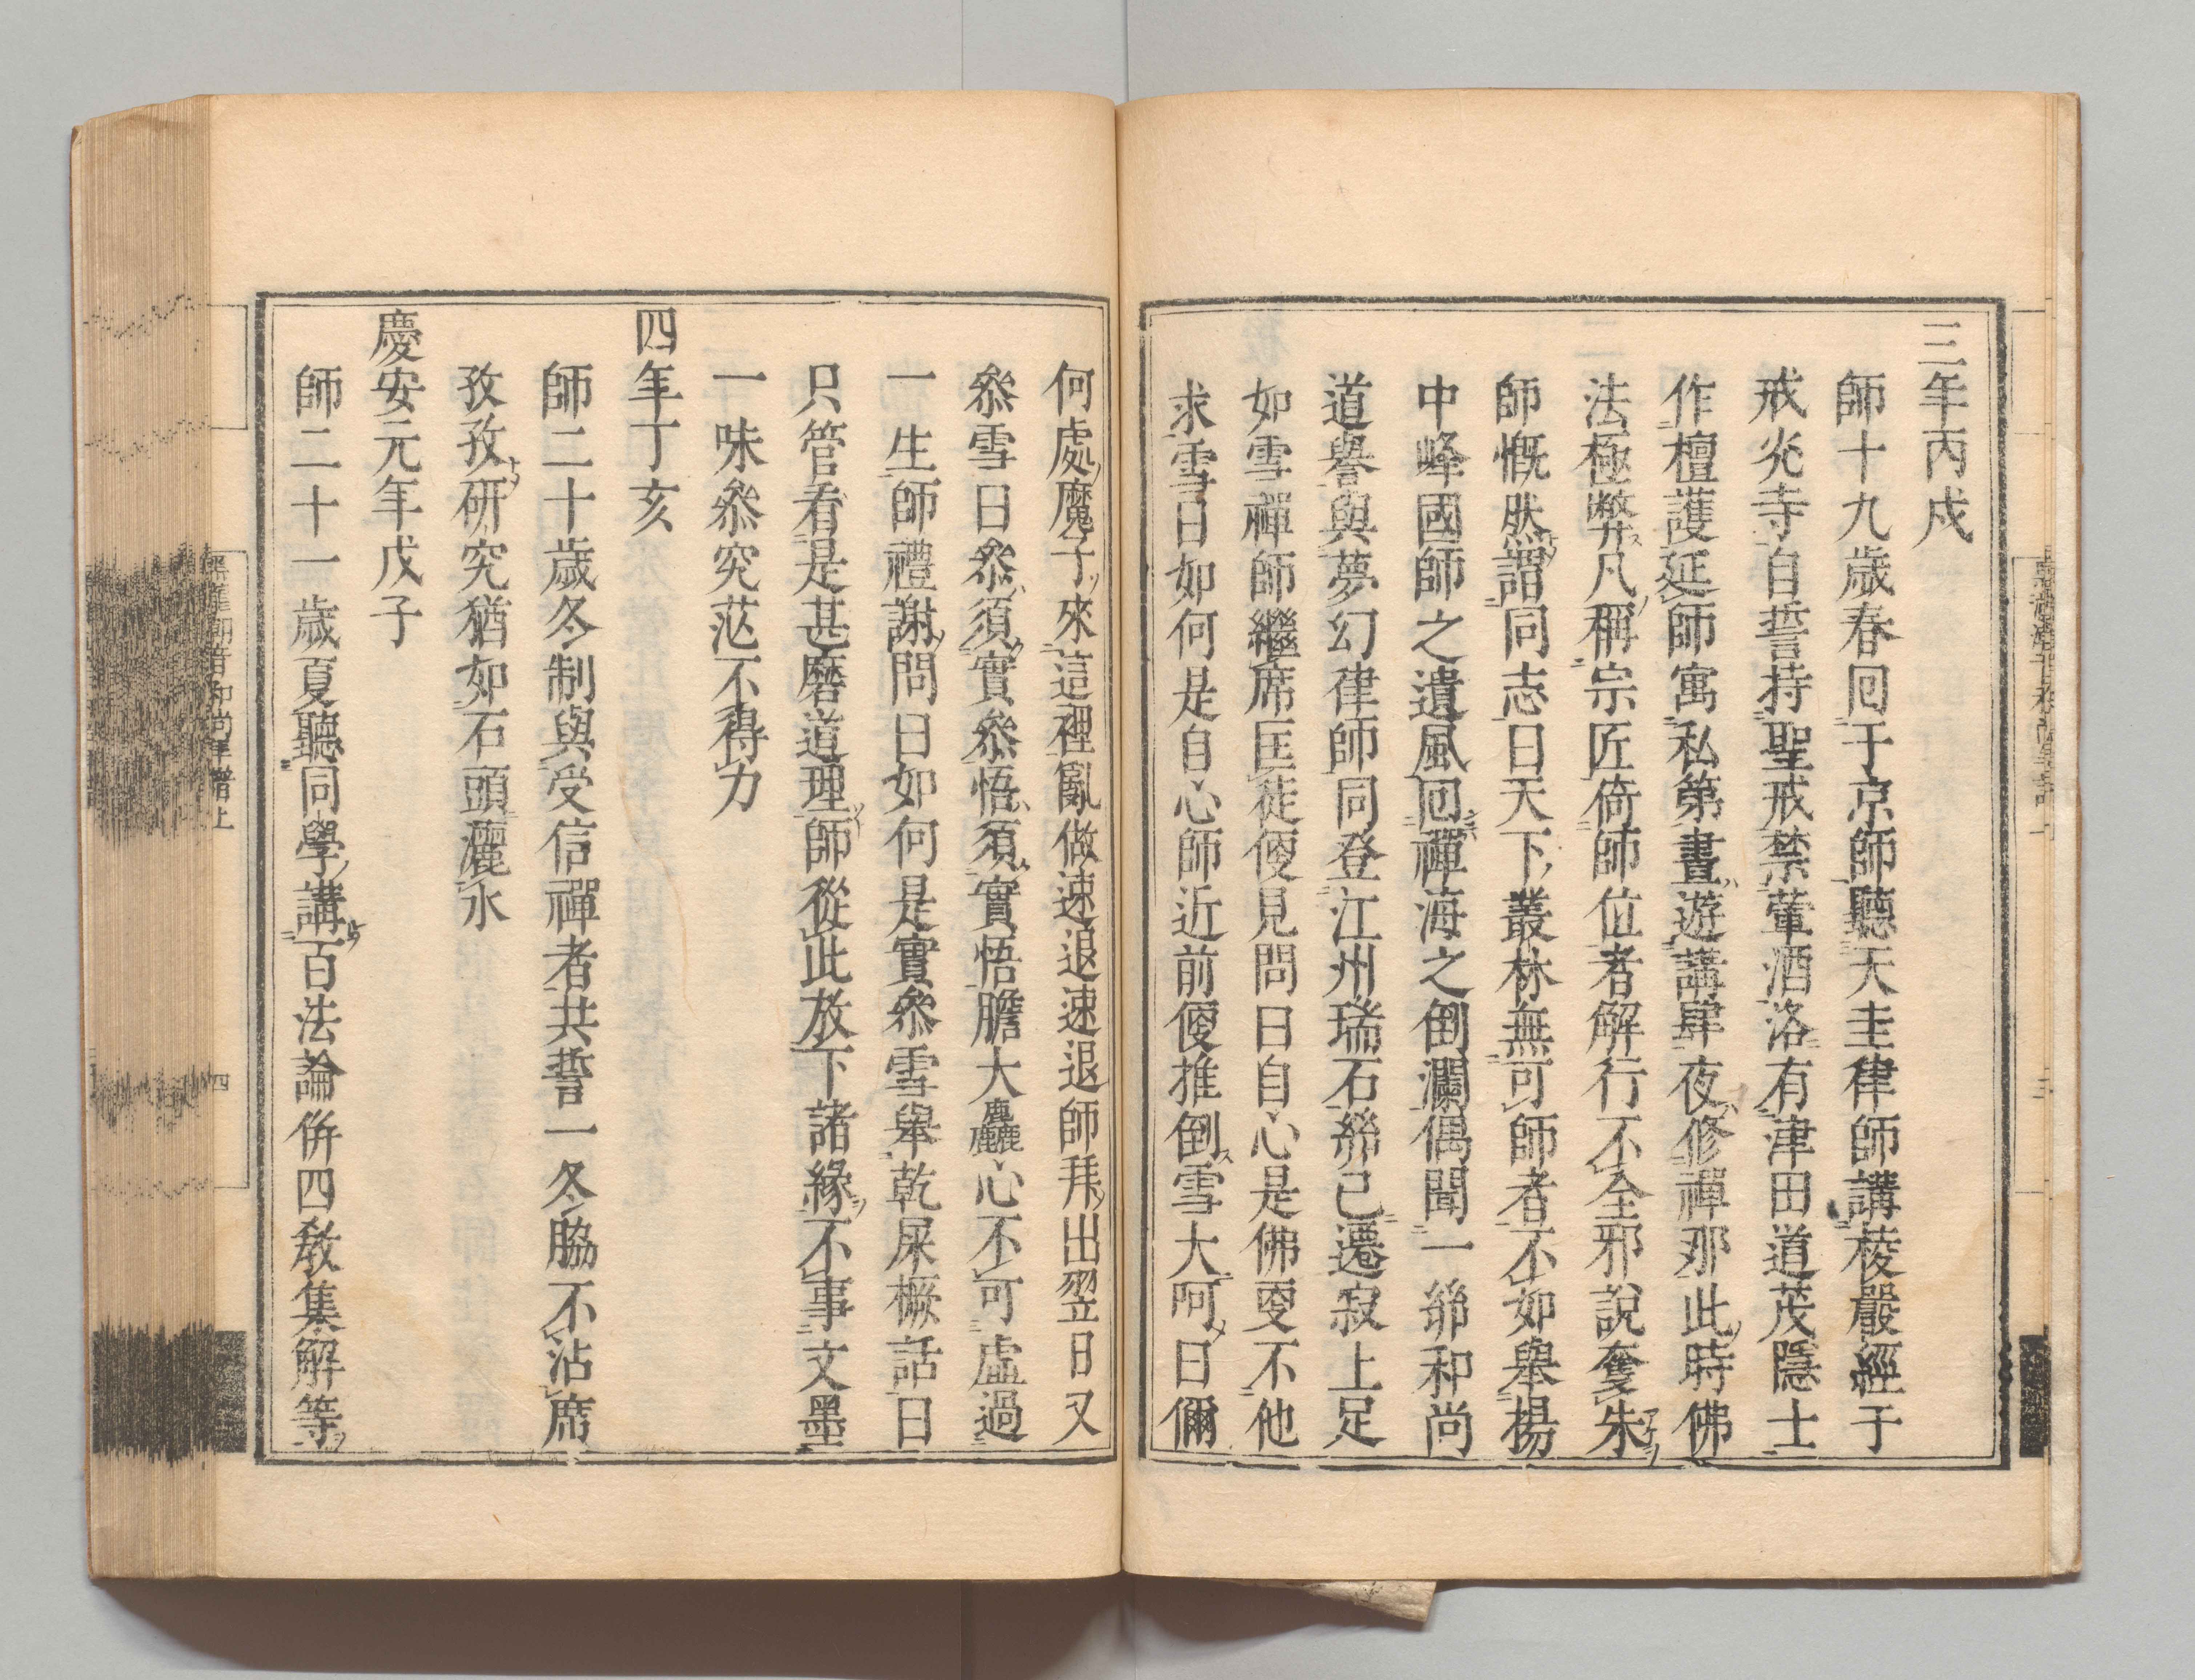 三年丙戌
師十九歲春囘于京師聽天圭律師講棱嚴經于
戒光寺自誓持聖戒禁葷酒洛有津田道茂隱士
作檀護延師寓私第晝遊講肆夜修禪那此時佛
法極弊凡稱宗匠倚師位者解行不全邪說奪朱
師慨然謂同志曰天下叢林無可師者不如舉揚
中峰國師之遺風囘禪海之倒瀾偶聞一絲和尚
道譽與夢幻律師同登江州瑞石絲已遷寂上足
如雪禪師繼席匡徒便見問曰自心是佛更不他
求雪曰如何是自心師近前便推倒雪大呵曰儞
何處魔子來這裡亂做速退速退師拜出翌日又
參雪曰參須實參悟須實悟膽大麤心不可虛過
一生師禮謝問曰如何是實參雪舉乾屎橛話曰
只管看是甚麼道理師從此放下諸緣不事文墨
一味參究茫不得力
四年丁亥
師二十歲冬制與受信禪者共誓一冬脇不沾席
孜孜研究猶如石頭灑水
慶安元年戊子
師二十一歲夏聽同學講百法論併四教集解等
潮音和尚年譜上
四